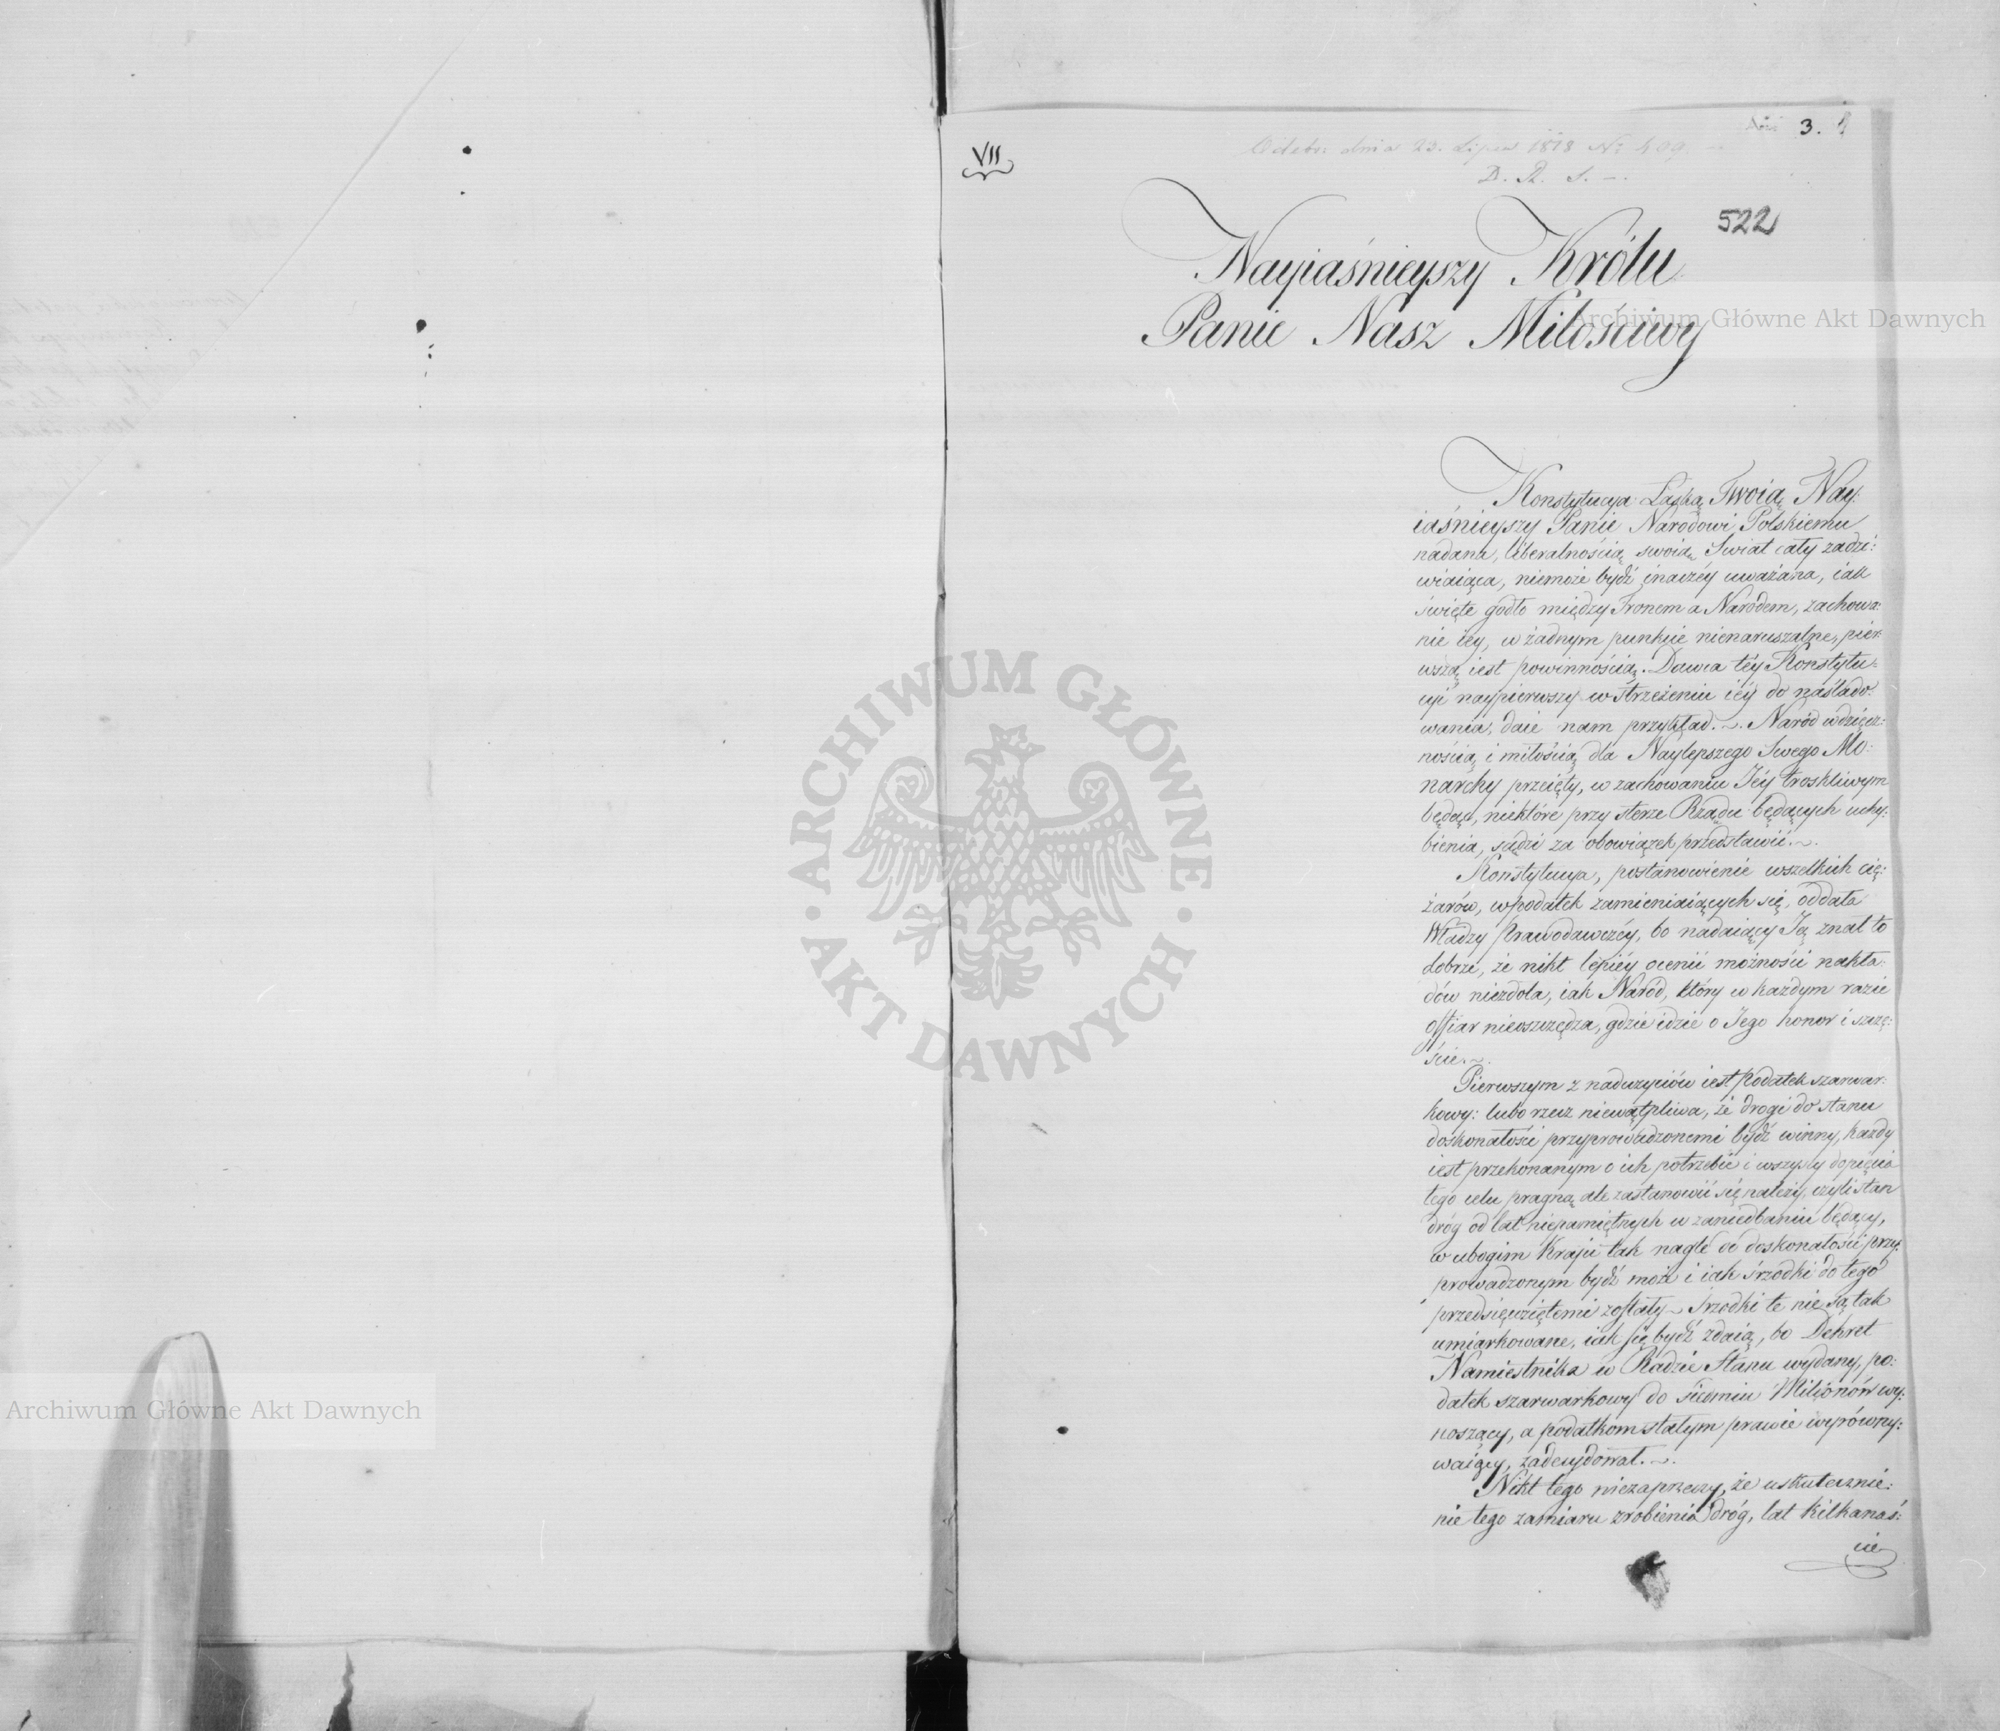 VII
3.
Odebr: dnia 23. Lipca 1818 Nr 409
D. R. S. —.
522
Nayiaśnieyszy Królu
Panie Nasz Miłościwy
Archiwum Główne Akt Dawnych
Konstytucya Łaską Twoią Nay:
iaśnieyszy Panie Narodowi Polskiemu
nadana, liberalnością swoią Swiat cały zadzi:
wiaiąca, niemoże bydź inaczéy uważana, iak
święte godło między Tronem a Narodem, zachowa:
nie iey, w żadnym punkcie nienaruszalne, pier:
wszą iest powinnością. Dawca téy Konstytu:
cyi naypierwszy w strzeżeniu iéy do naślado:
wania, daie nam przykład.~. Naród wdzięcz:
nością i miłością dla Naylepszego Swego Mo:
narchy przeięty, w zachowaniu Jéy troskliwym
będąc, niektóre przy sterze Rządu będących uchy:
bienia, sądzi za obowiązek przedstawić.~.
Konstytucya, postanowienie wszelkich cię:
żarów, w podatek zamieniaiących się, oddała
Władzy Prawodawczéy, bo nadaiący Ją znał to
dobrze, że nikt lepiéy ocenić możności nakła
dów niezdoła, iak Naród, który w każdym razie
offiar nieoszczędza, gdzie idzie o Jego honor i szczę:
ście.~.
Pierwszym z nadużyciów iest Podatek szarwar:
kowy: lubo rzecz niewątpliwa, że drogi do stanu
doskonałości przyprowadzonemi bydź winny, każdy
iest przekonanym o ich potrzebie i wszyscy dopięcia
tego celu pragną ale zastanowić się należy, czyli stan
dróg od lat niepamiętnych w zaniedbaniu będący,
w ubogim Kraju tak nagle do doskonałości przy:
prowadzonym bydź może i iak śrzodki do tego
przedsięwziętemi zostały~ śrzodki te nie są tak
umiarkowane, iak się bydź zdaią, bo Dekret
Namiestnika w Radzie Stanu wydany, po:
datek szarwarkowy do siedmiu Milionów wy:
noszący, a podatkom stałym prawie wyrówny:
waiący, zadecydował.~.
Nikt tego niezaprzeczy, że uskutecznie:
nie tego zamiaru zrobienia dróg, lat kilkanaś:
cie
ARCHIWUM GŁÓWNE
AKT DAWNYCH
Archiwum Główne Akt Dawnych